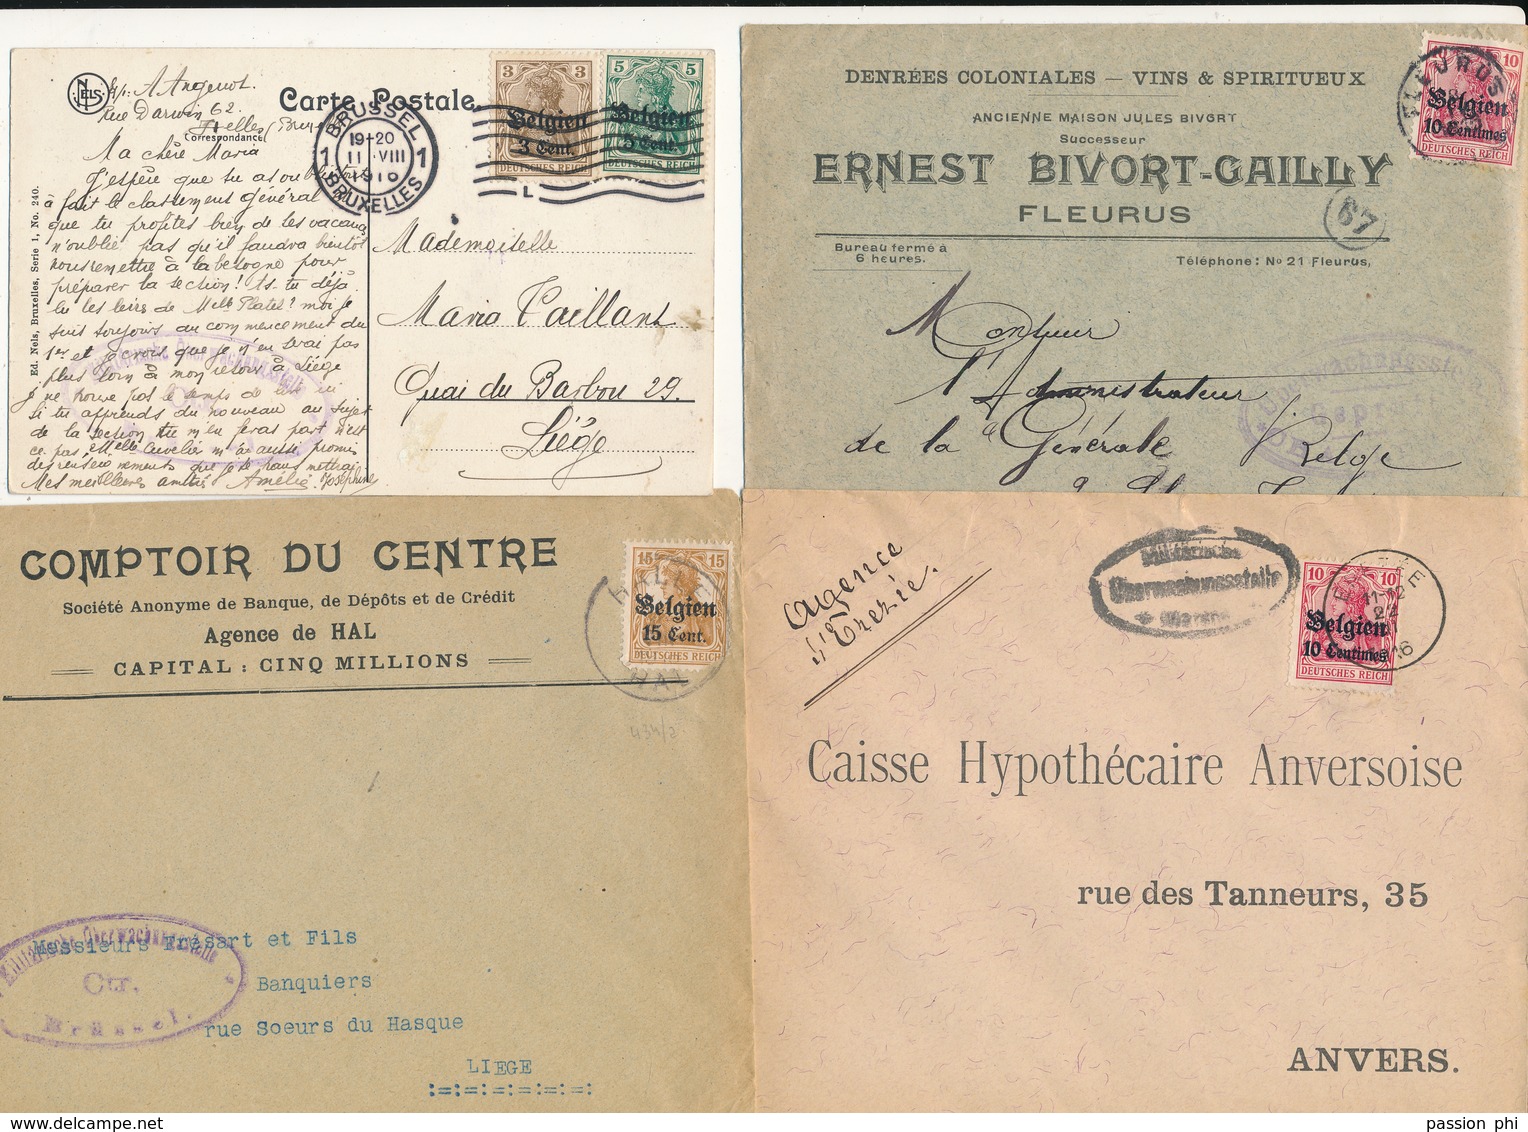 NELS
A Angenot
Rue Darwin 62
Carte Postale
Correspondance
Ma chère Maria
J'espère que tu as
à fait le classement général
que tu profites bien de tes vacances
n'oublie pas qu'il faudra bientôt
nous remettre à la besogne pour
préparer la section! As-tu déjà
lu les livres de Melle Plates? moi je
suis toujours au commencement du
1er et je crois que je n'en serai pas
plus loin à mon retour à Liège
je ne trouve pas le temps de
si tu apprends du nouveau au sujet
de la section tu m'en feras part n'est
ce pas, Melle m'a aussi promis
des renseignements que je te transmettrai
Mes meilleures amitiés Amélie Joséphine
Ed. Nels, Bruxelles, Serie 1, No. 240.
BRUSSEL
1 19-20 1
11 VIII
1916
BRUXELLES
3 3
Belgien
3 Cent.
DEUTSCHES REICH
5 5
Belgien
5 Cent.
DEUTSCHES REICH
L
Mademoiselle
Maria Vaillant
Quai du Barbou 29.
Liége
Militärische Überwachungsstelle
DENRÉES COLONIALES — VINS & SPIRITUEUX
ANCIENNE MAISON JULES BIVORT
Successeur
ERNEST BIVORT-GAILLY
FLEURUS
Bureau fermé à
6 heures.
Téléphone: No 21 Fleurus,
67
FLEURUS
10
Belgien
10 Centimes
DEUTSCHES REICH
Monsieur
l'Administrateur
de la Générale Belge
COMPTOIR DU CENTRE
Société Anonyme de Banque, de Dépôts et de Crédit
Agence de HAL
CAPITAL : CINQ MILLIONS
15 15
Belgien
15 Cent.
DEUTSCHES REICH
HAL
434/2
Militärische Überwachungsstelle
Ctr.
Brüssel.
Messieurs Frésart et Fils
Banquiers
rue Soeurs du Hasque
LIEGE
:=:=:=:=:=:=:
Agence
Militärische
Überwachungsstelle
10 10
Belgien
10 Centimes
DEUTSCHES REICH
11-12
16
Caisse Hypothécaire Anversoise
rue des Tanneurs, 35
ANVERS.
passion phi